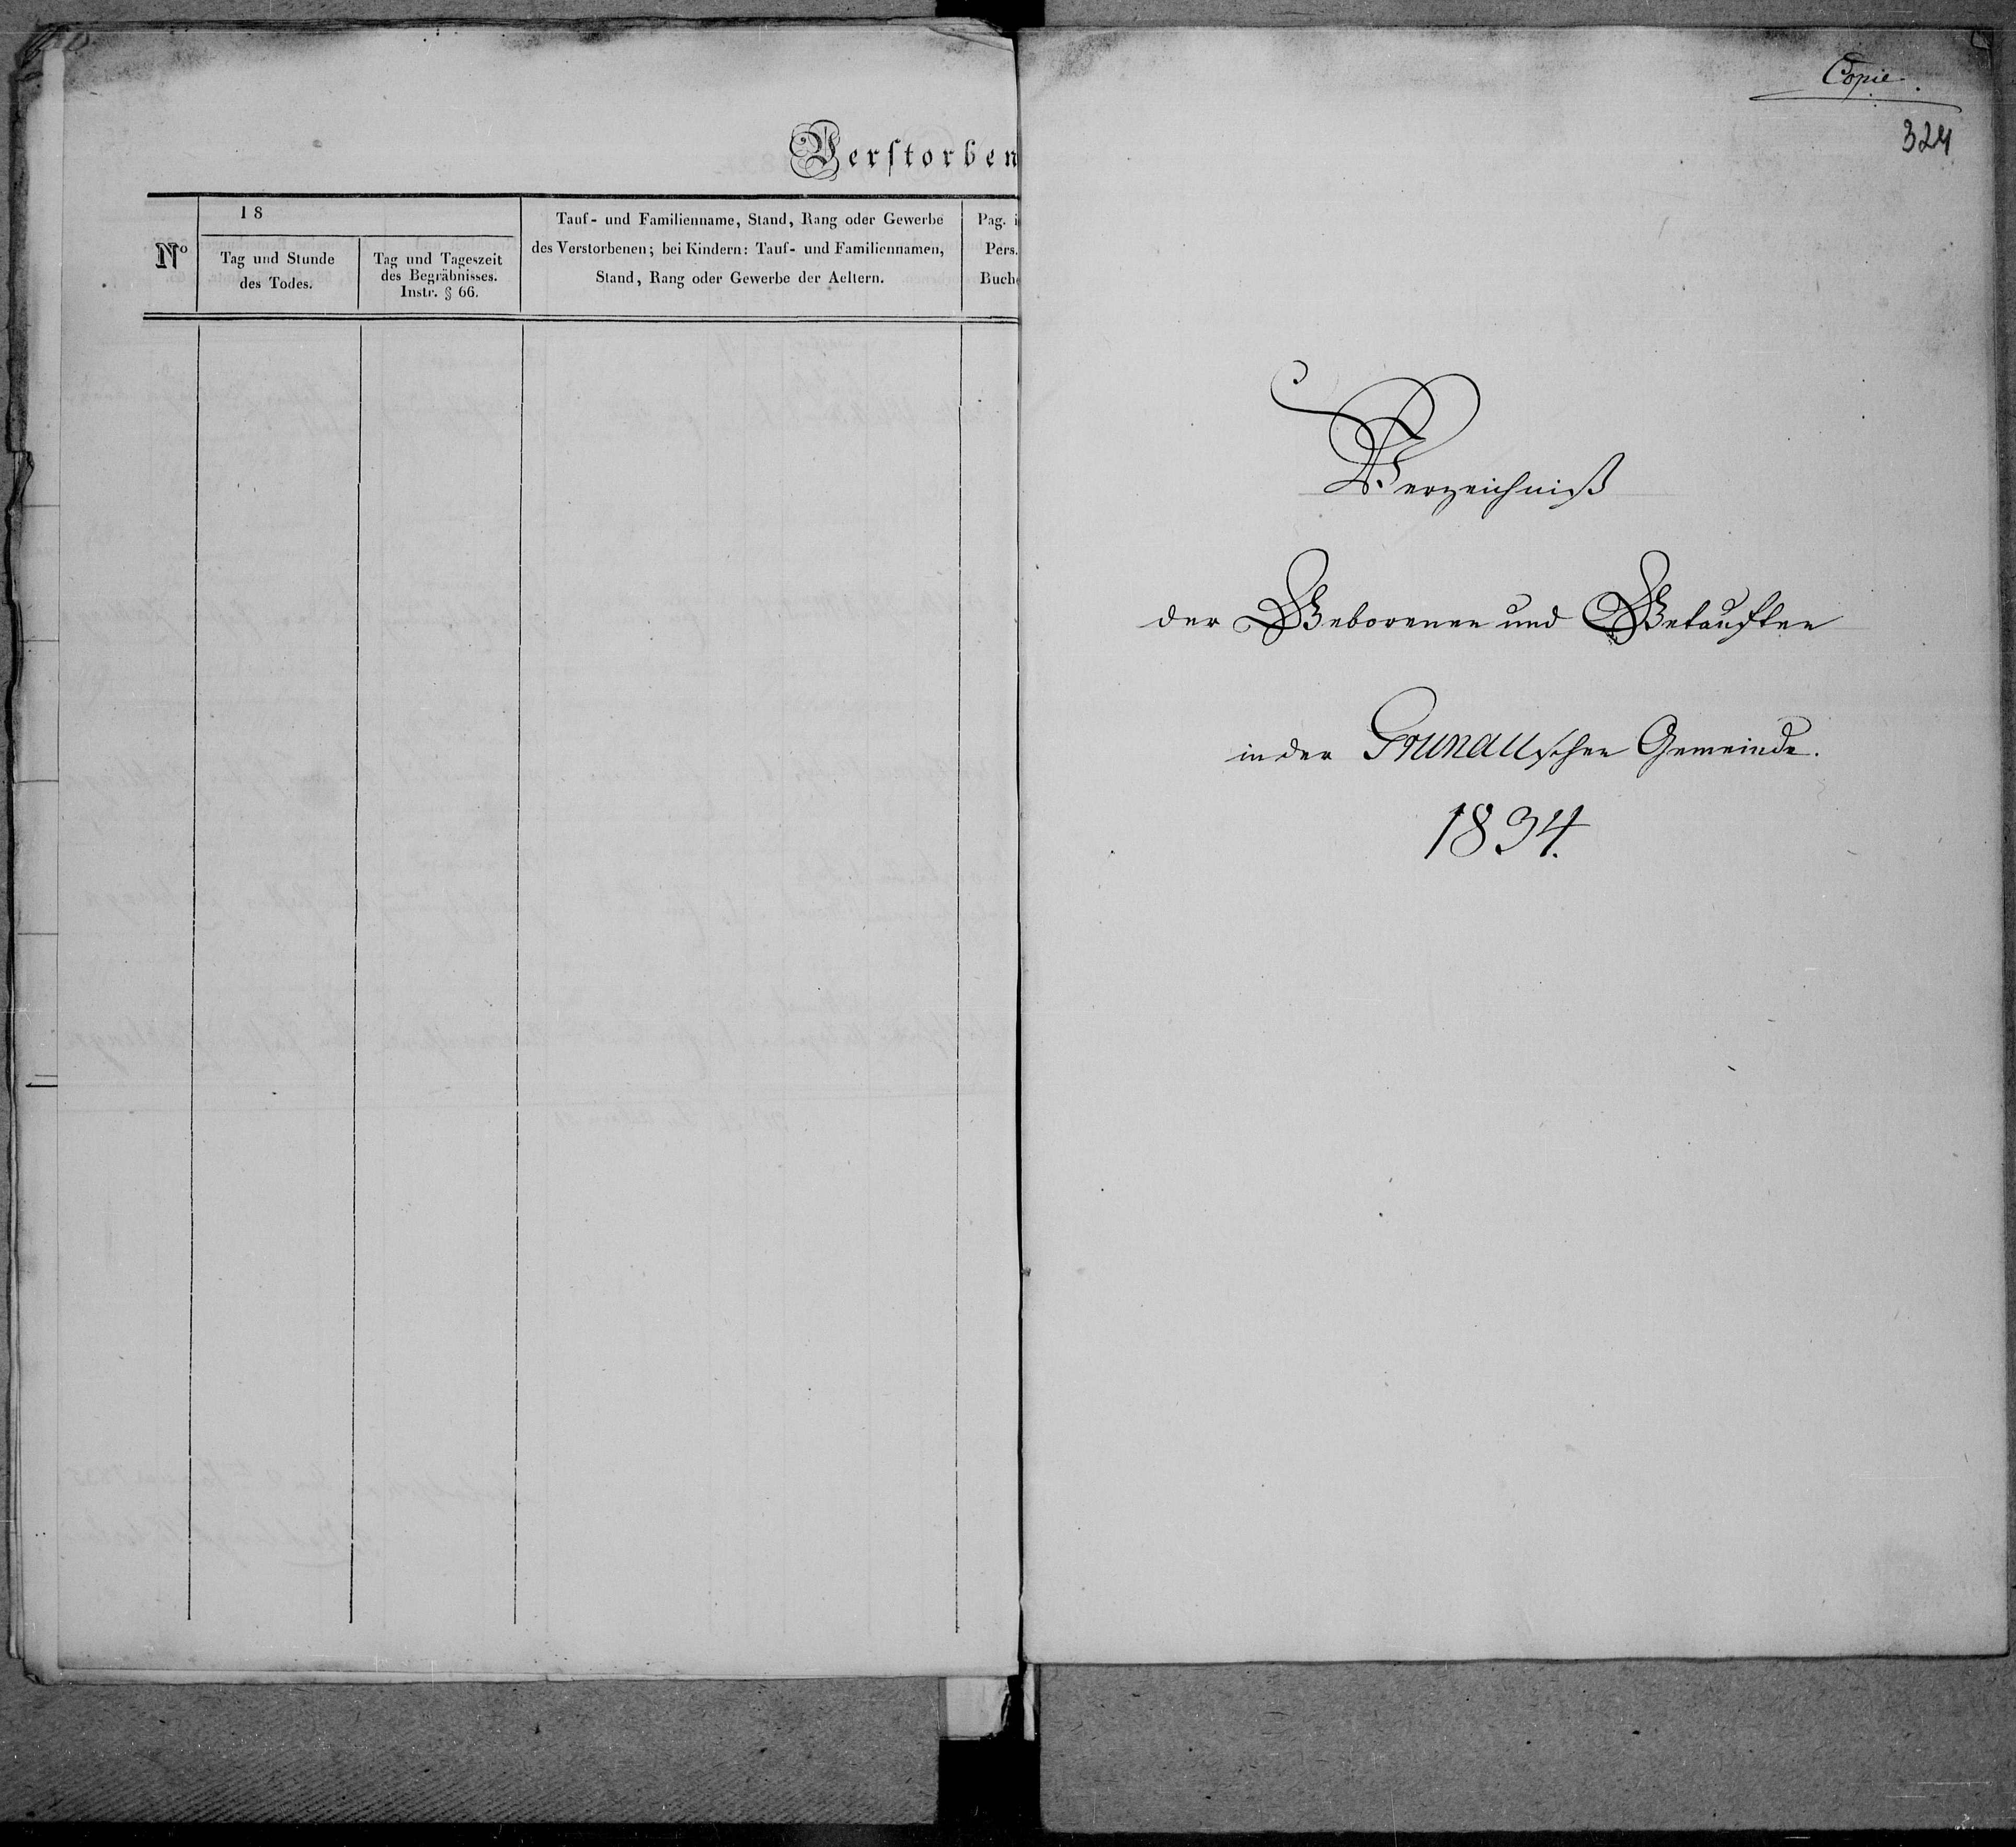 Verstorben
No
18
Tag und Stunde
des Todes.
Tag und Tageszeit
des Begräbnisses.
Instr. § 66.
Tauf- und Familienname, Stand, Rang oder Gewerbe
des Verstorbenen; bei Kindern: Tauf- und Familiennamen,
Stand, Rang oder Gewerbe der Aeltern.
Pag. i
Pers.
Buche
Copie.
324
Verzeichniß
der Geborenen und Getauften
in der Grunauschen Gemeinde.
1834.